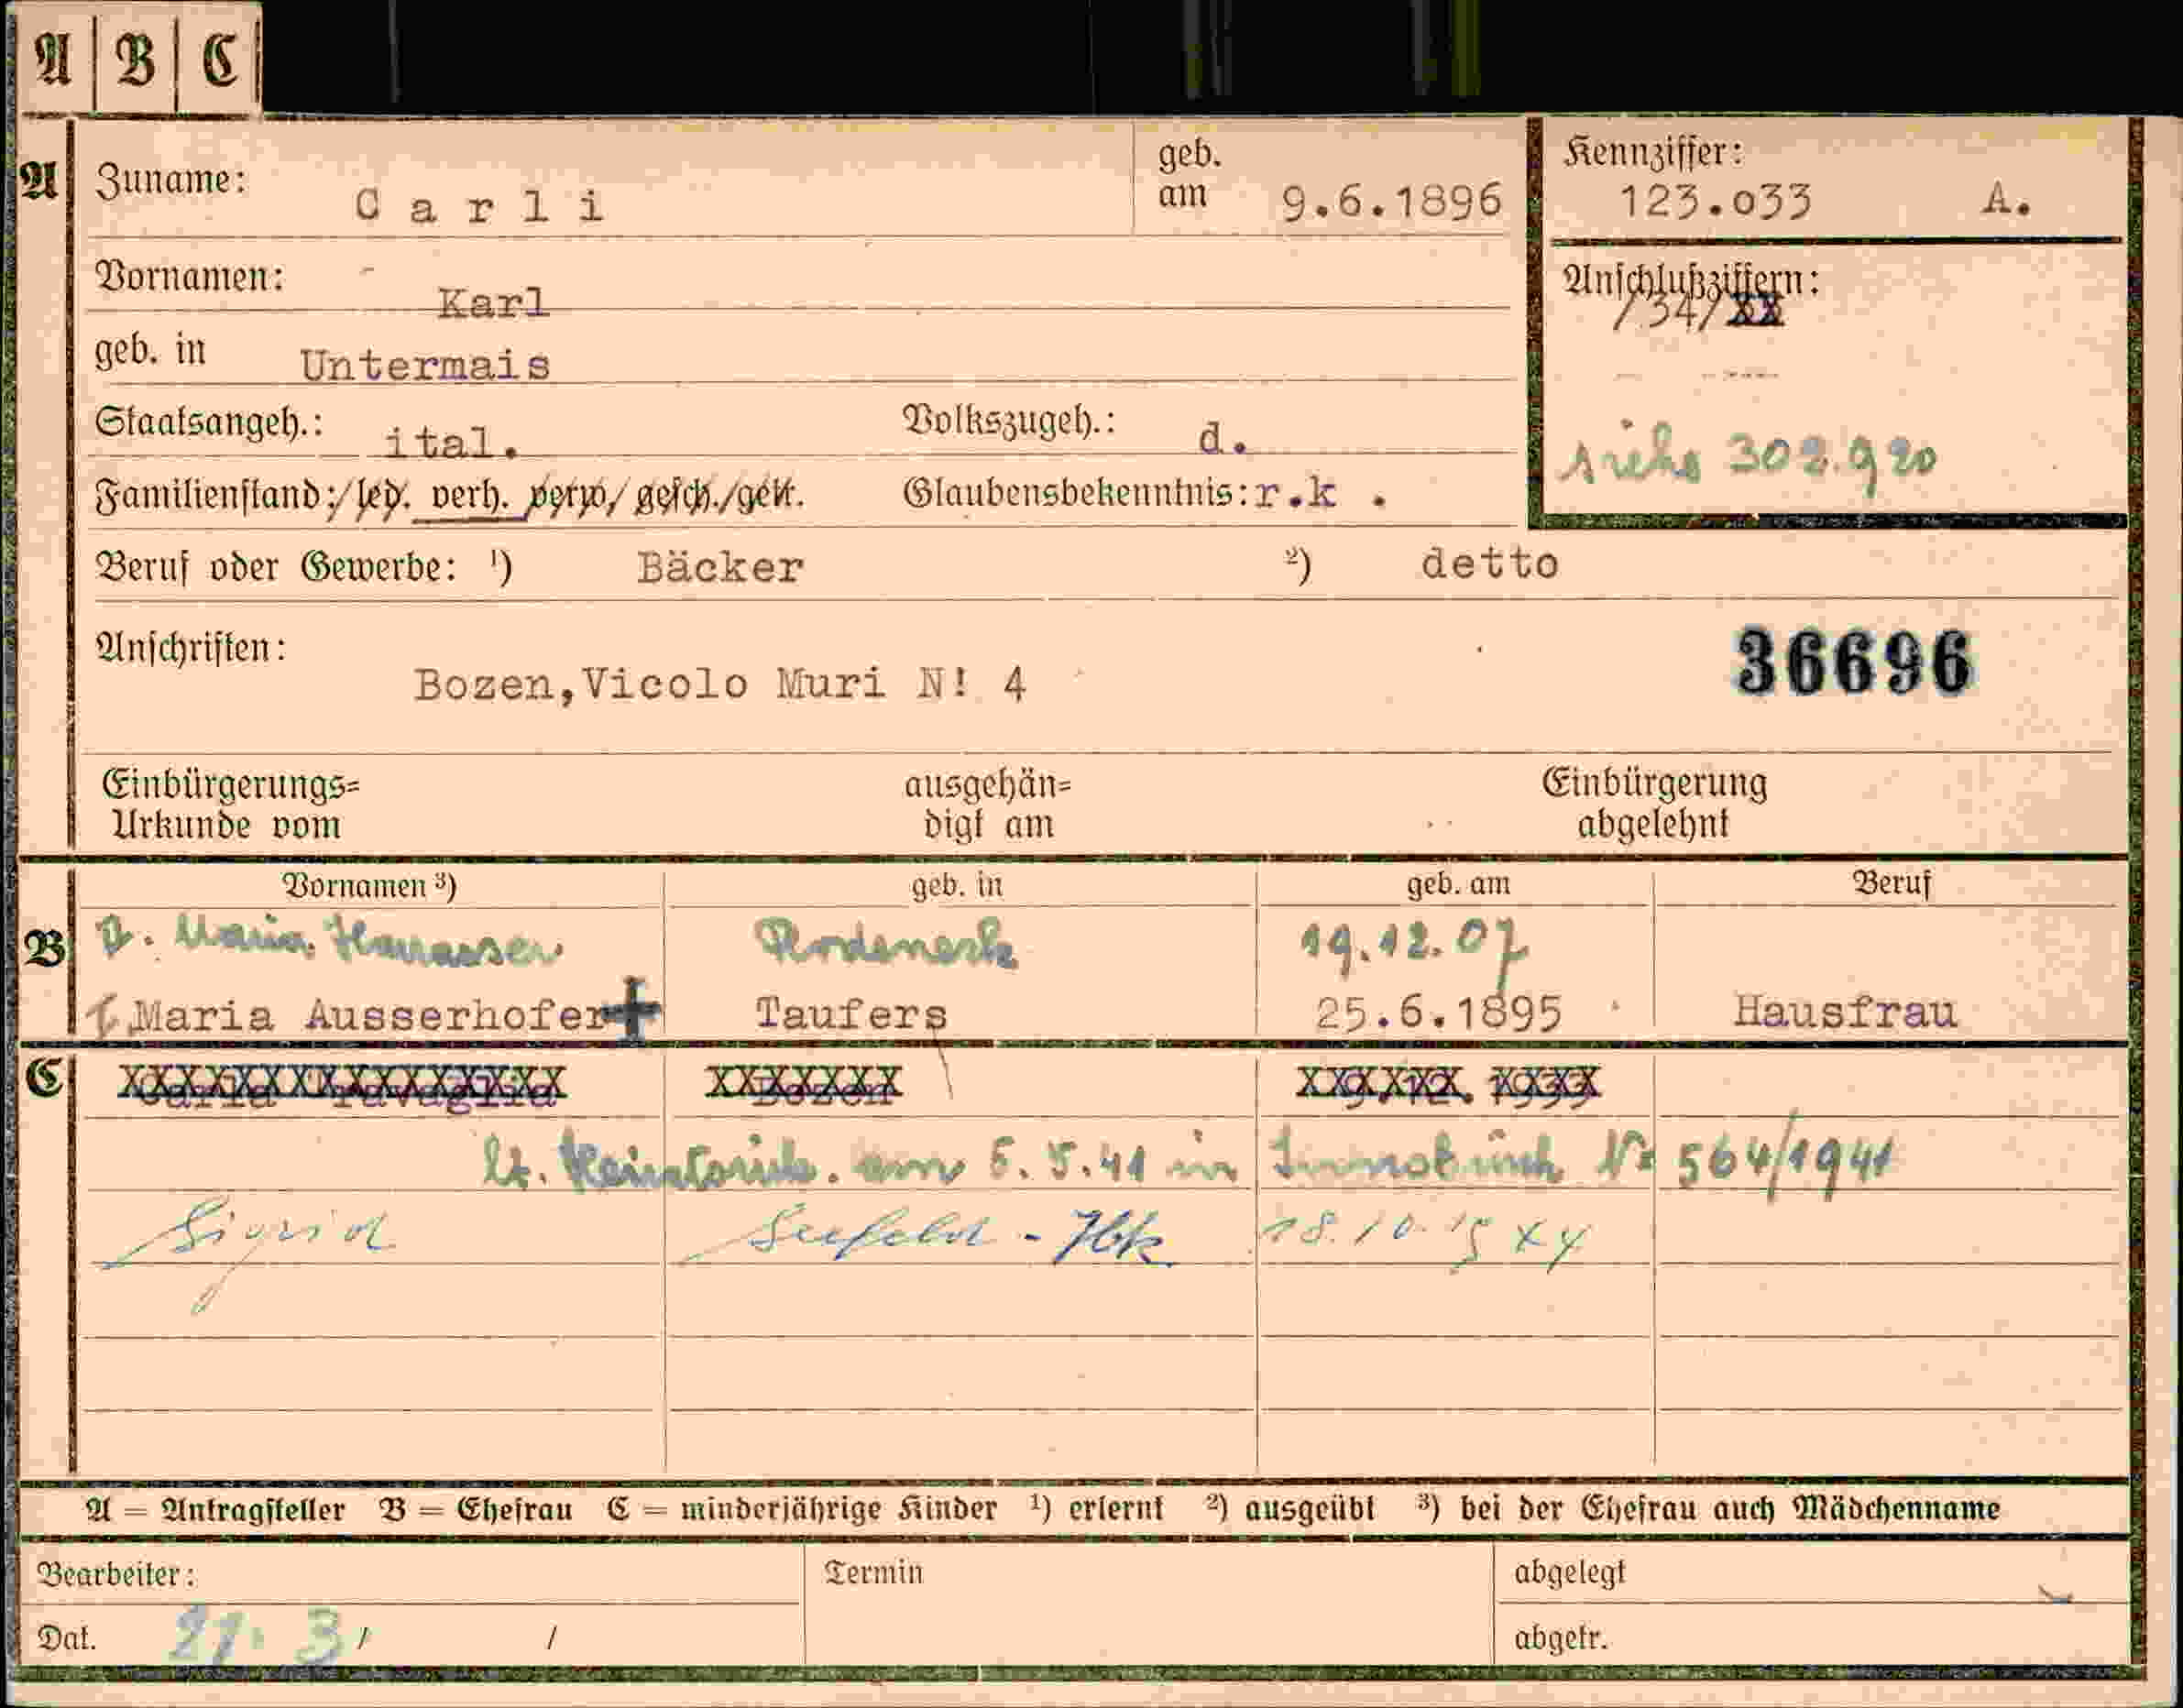 A B C
A
Zuname: Carli
geb. am 9.6.1896
Kennziffer:
123.033 A.
Vornamen: Karl
Anschlußziffern:
/34/
geb. in Untermais
Staatsangeh.: ital. Volkszugeh.: d.
siehe 302.920
Familienstand: led. verh. verw. gesch./getr. Glaubensbekenntnis: r.k .
Beruf oder Gewerbe: ¹) Bäcker ²) detto
Anschriften:
36696
Bozen,Vicolo Muri N! 4
Einbürgerungs= ausgehän= Einbürgerung
Urkunde vom digt am abgelehnt
Vornamen ³) geb. in geb. am Beruf
B
2. Maria Rodeneck 19.12.07
1. Maria Ausserhofer + Taufers 25.6.1895 Hausfrau
C
Carla Bozen
lt. am 5.41 in Innsbruck Nr 564/1941
Sigrid Seefeld - Ibk 18.10.
A = Antragsteller B = Ehefrau C = minderjährige Kinder ¹) erlernt ²) ausgeübt ³) bei der Ehefrau auch Mädchenname
Bearbeiter: Termin abgelegt
Dat. 3/ / abgetr.